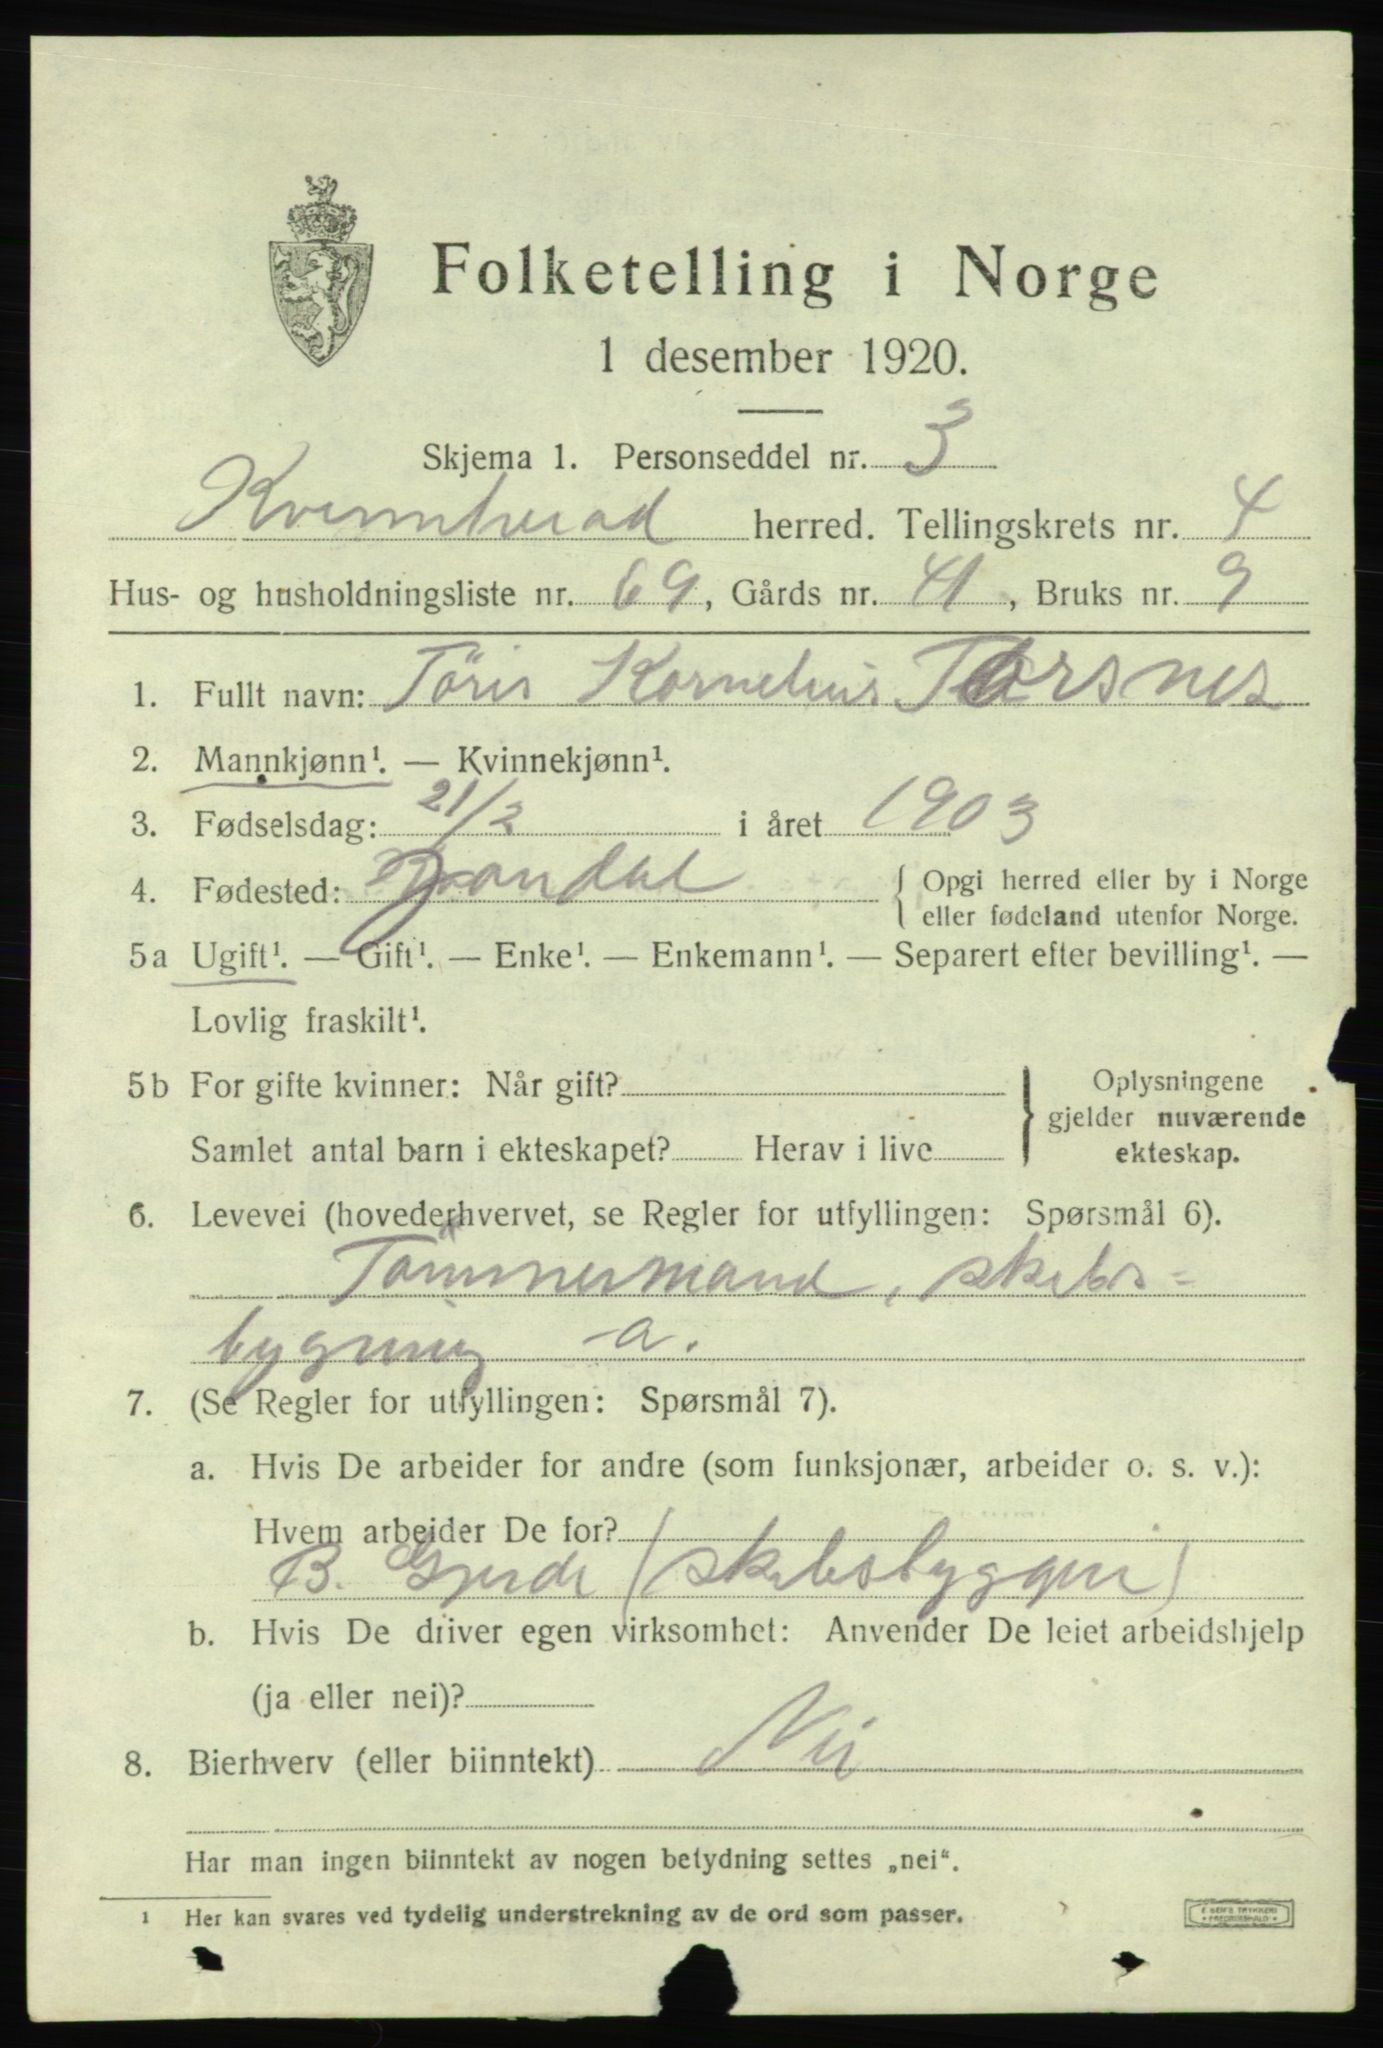 Folketelling i Norge
1 desember 1920.
Skjema 1. Personseddel nr. 3
Kvinnherad herred. Tellingskrets nr. 4
Hus- og husholdningsliste nr. 69, Gårds nr. 41, Bruks nr. 9
1. Fullt navn: Töris Kornelius Torsnes
2. Mannkjønn¹. — Kvinnekjønn¹.
3. Fødselsdag: 21/2 i året 1903
4. Fødested: Jondal { Opgi herred eller by i Norge
eller fødeland utenfor Norge.
5a Ugift¹. — Gift¹. — Enke¹. — Enkemann¹. — Separert efter bevilling¹. —
Lovlig fraskilt¹.
5b For gifte kvinner: Når gift? } Oplysningene
gjelder nuværende
Samlet antal barn i ekteskapet? Herav i live ekteskap.
6. Levevei (hovederhvervet, se Regler for utfyllingen: Spørsmål 6).
Tömmermand, skibs=
bygning a.
7. (Se Regler for utfyllingen: Spørsmål 7).
a. Hvis De arbeider for andre (som funksjonær, arbeider o. s. v.):
Hvem arbeider De for?
B. Gjerde (skibsbyggeri)
b. Hvis De driver egen virksomhet: Anvender De leiet arbeidshjelp
(ja eller nei)?
8. Bierhverv (eller biinntekt) Nei
Har man ingen biinntekt av nogen betydning settes „nei“.
1 Her kan svares ved tydelig understrekning av de ord som passer.